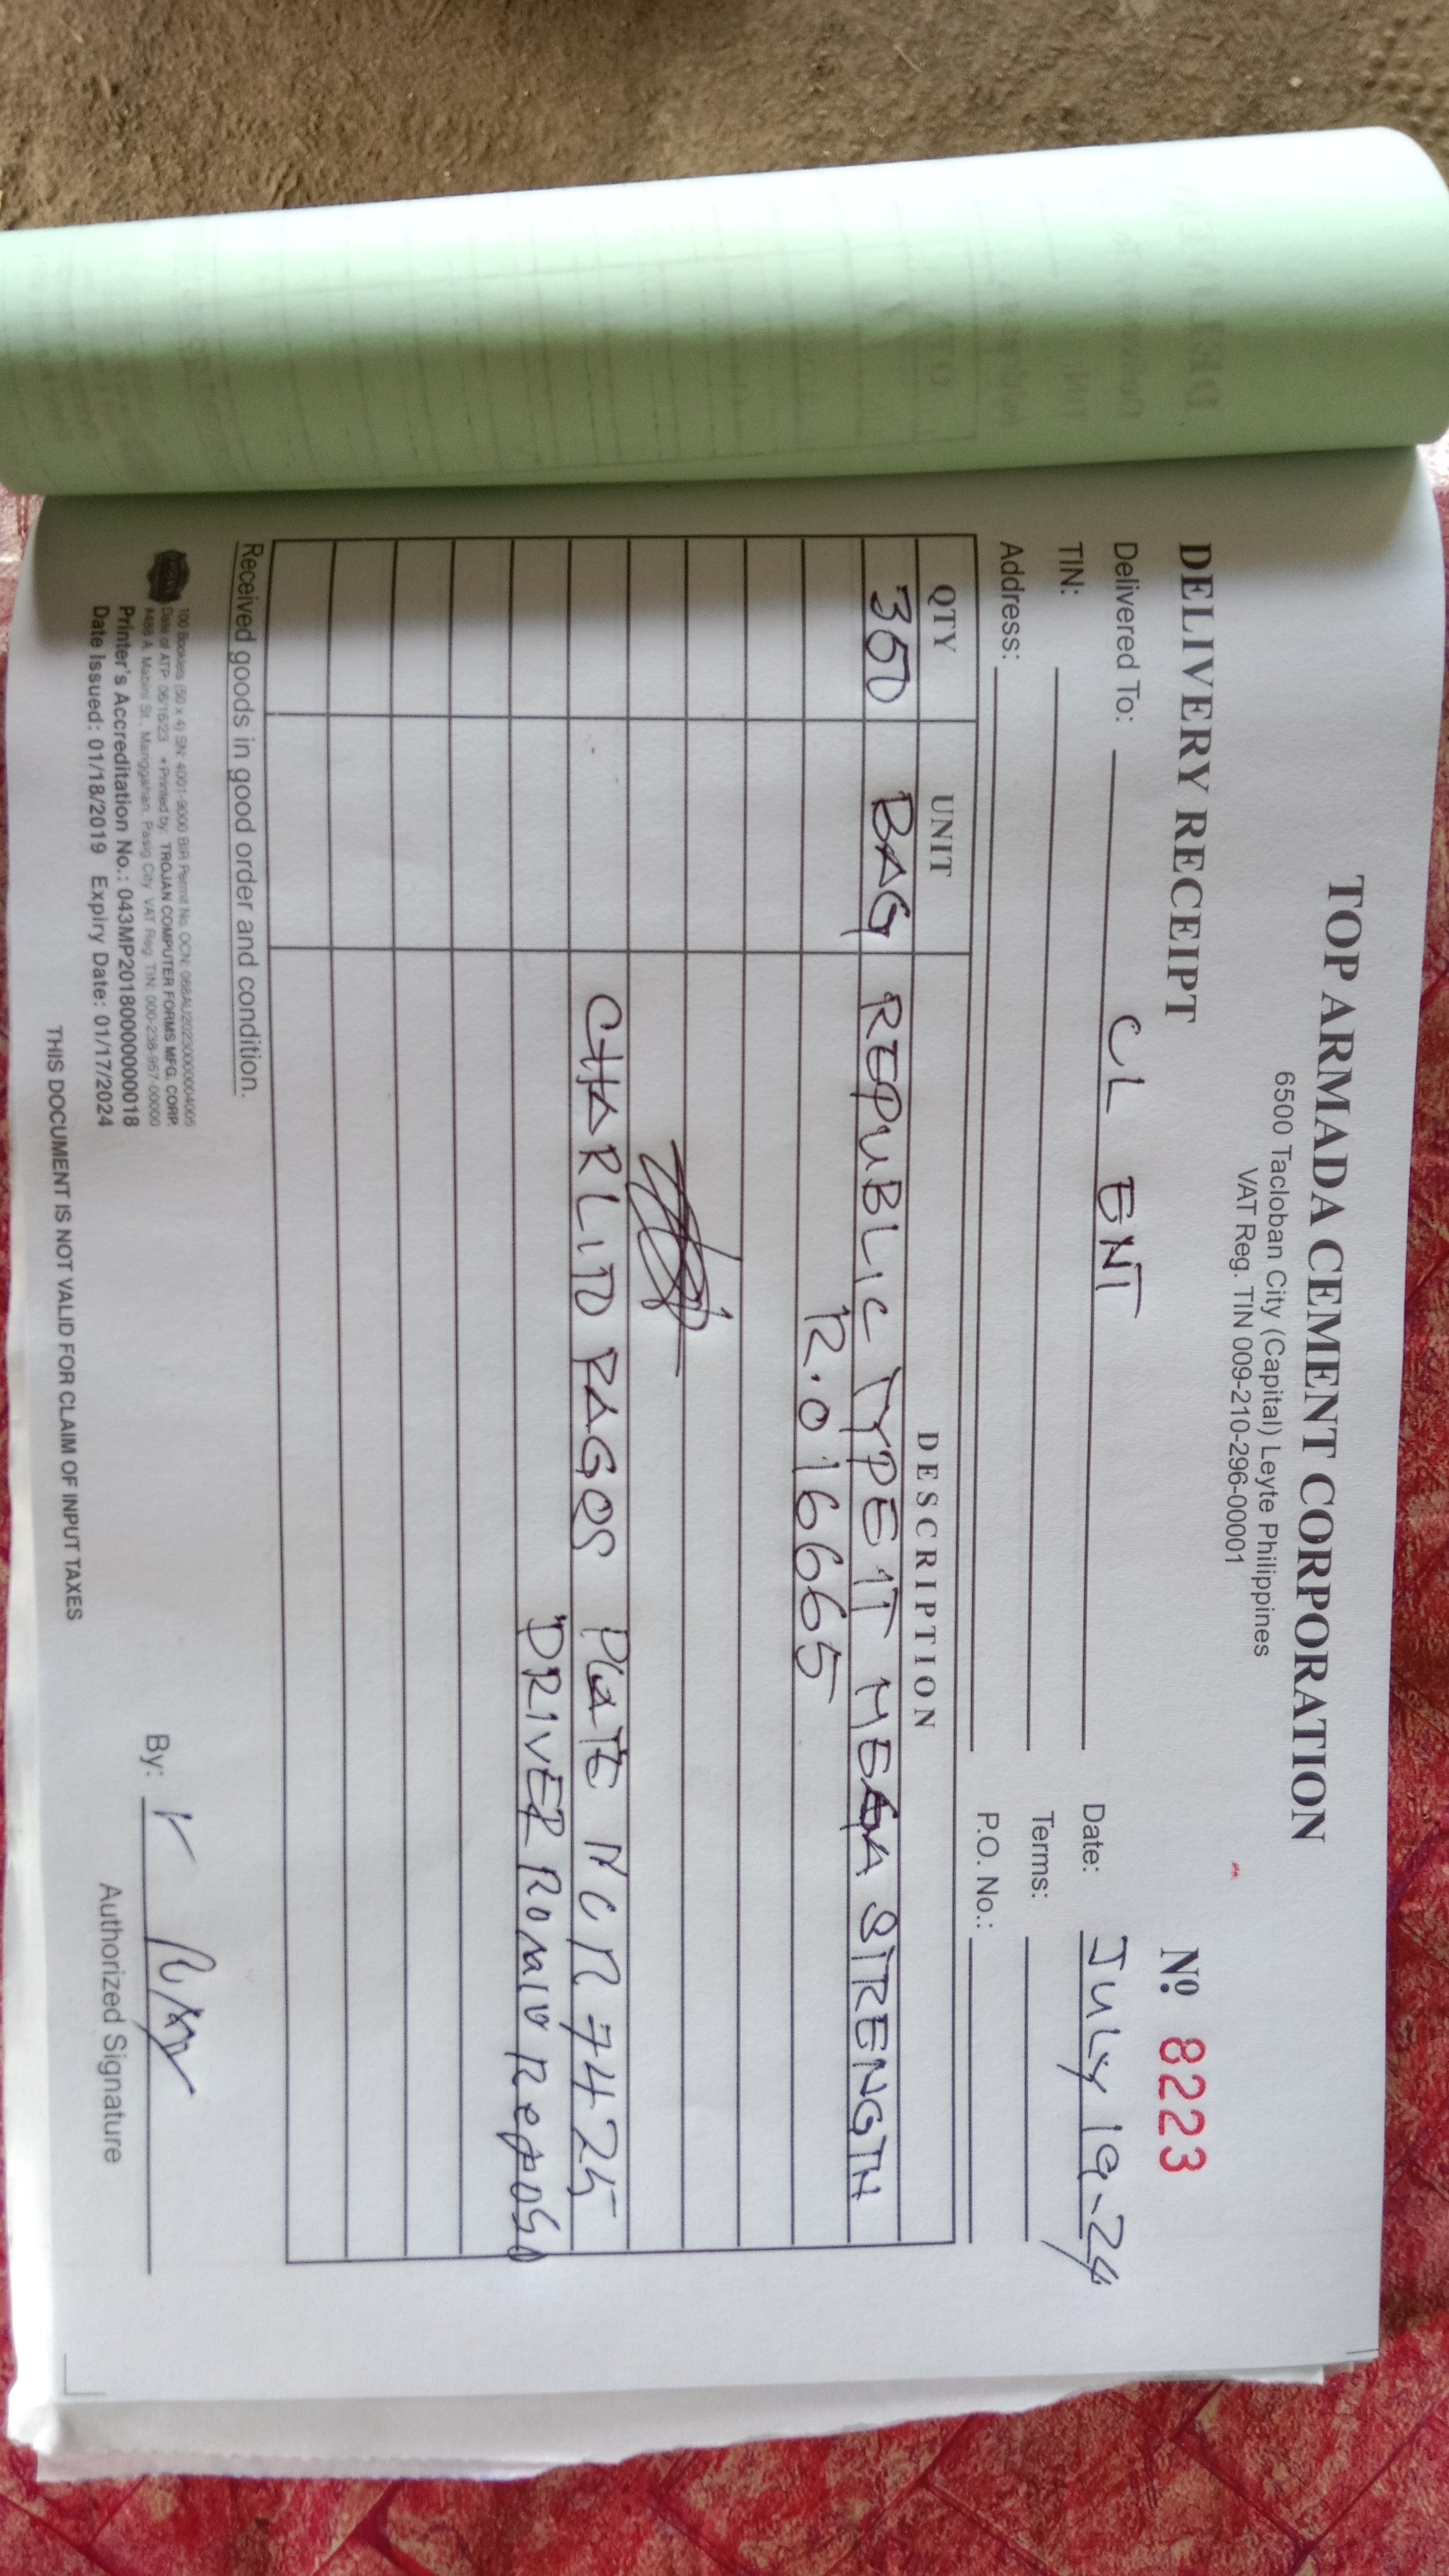 TOP ARMADA CEMENT CORPORATION
6500 Tacloban City (Capital) Leyte Philippines
VAT Reg. TIN 009-210-296-00001
DELIVERY RECEIPT
Nº 8223
Delivered To: CL ENT Date: July 19-24
TIN: Terms:
Address: P.O. No.:
QTY UNIT DESCRIPTION
350 BAG REPUBLIC TYPE 1T MEGA STRENGTH
R.016665
CHARLITO RAGES PLATE NCR 7425
DRIVER ROMIO REPOSO
Received goods in good order and condition.
100 Booklets (50 x 4) SN: 4001-9000 BIR Permit No. OCN: 088AU20230000004005
Date of ATP: 06/16/23 • Printed by: TROJAN COMPUTER FORMS MFG. CORP.
#46B A. Mabini St., Manggahan, Pasig City VAT Reg. TIN: 000-238-957-00000
Printer's Accreditation No.: 043MP20180000000018
Date Issued: 01/18/2019 Expiry Date: 01/17/2024
By:
Authorized Signature
THIS DOCUMENT IS NOT VALID FOR CLAIM OF INPUT TAXES